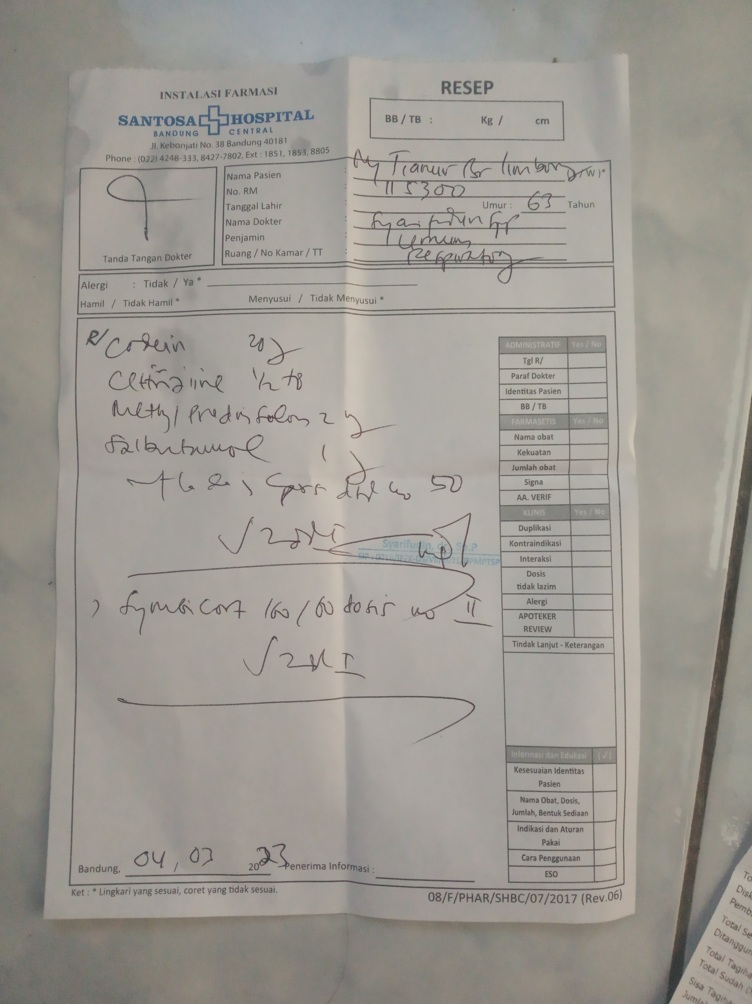 INSTALASI FARMASI
SANTOSA HOSPITAL
BANDUNG CENTRAL
Jl. Kebonjati No. 38 Bandung 40181
Phone : (022) 4248-333, 8427-7802, Ext : 1851, 1853, 8805
RESEP
BB / TB : Kg / cm
Tanda Tangan Dokter
Nama Pasien : Ny Tianur Br
No. RM : 115300
Tanggal Lahir : Umur : 63 Tahun
Nama Dokter : Syaifudin
Penjamin : Umum
Ruang / No Kamar / TT : Respiratory
Alergi : Tidak / Ya *
Hamil / Tidak Hamil * Menyusui / Tidak Menyusui *
R/ Codein 20
Cetirizine 1/2 tb
Methyl prednisolon 2
Salbutamol 1
50
Symbicort 160/60 dosis no II
ADMINISTRATIF Yes / No
Tgl R/
Paraf Dokter
Identitas Pasien
BB / TB
FARMASETIS Yes / No
Nama obat
Kekuatan
Jumlah obat
Signa
AA. VERIF
KLINIS Yes / No
Duplikasi
Kontraindikasi
Interaksi
Dosis
tidak lazim
Alergi
APOTEKER
REVIEW
Tindak Lanjut - Keterangan
Informasi dan Edukasi (√)
Kesesuaian Identitas
Pasien
Nama Obat, Dosis,
Jumlah, Bentuk Sediaan
Indikasi dan Aturan
Pakai
Cara Penggunaan
ESO
Bandung, 04, 03 2023 Penerima Informasi :
Ket : * Lingkari yang sesuai, coret yang tidak sesuai.
08/F/PHAR/SHBC/07/2017 (Rev.06)